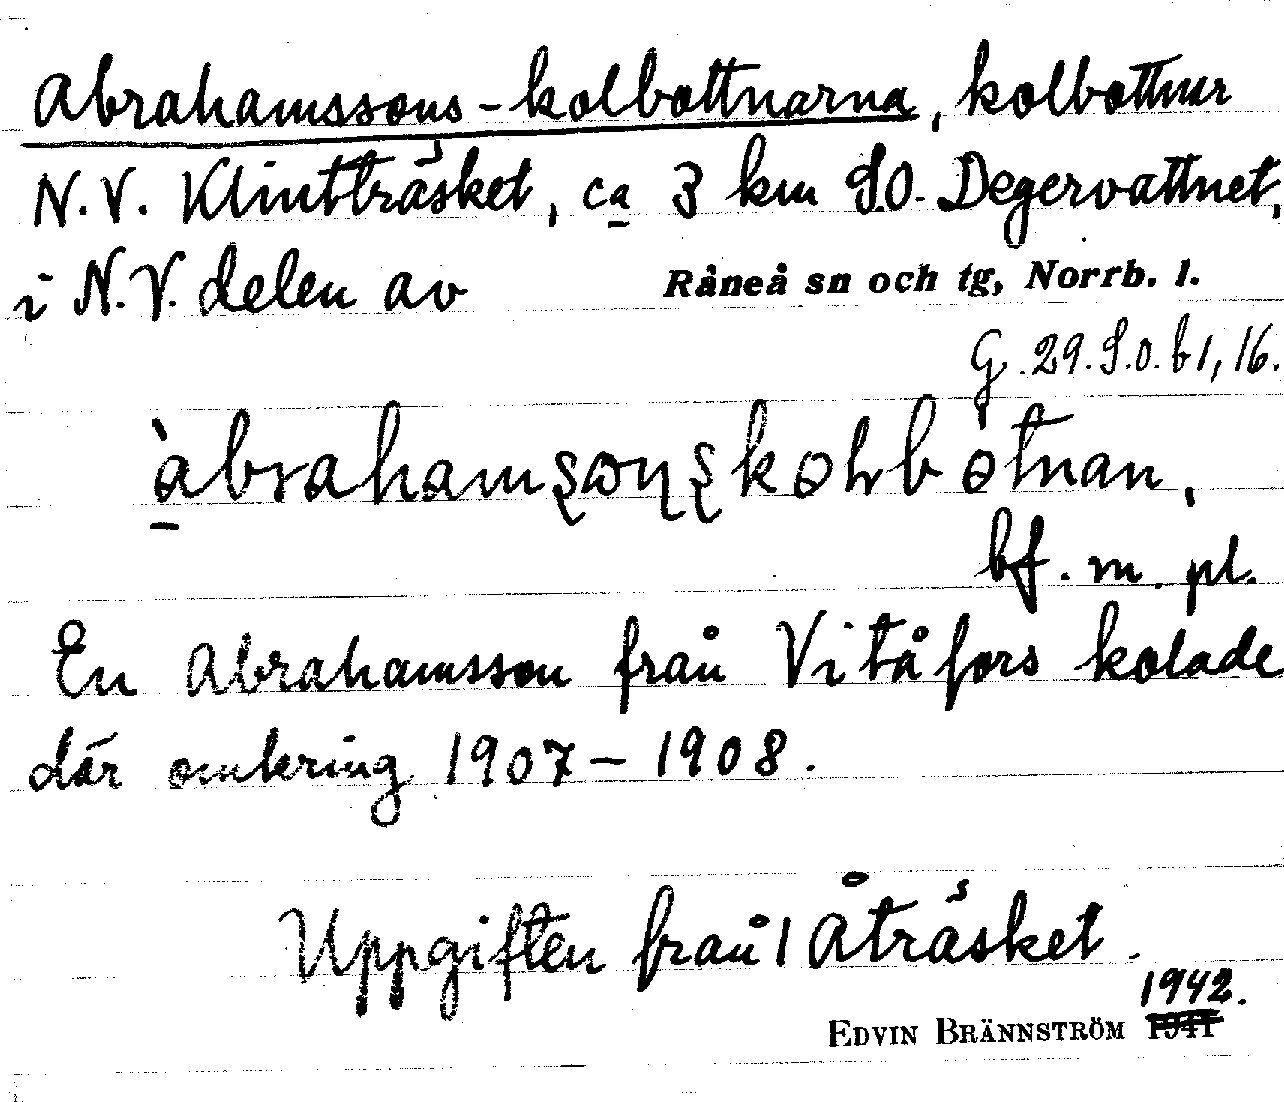 Abrahamssons-kolbottnarna, kolbottnar
N.V. Klintträsket, ca 3 km S.O. Degervattnet,
i N.V. delen av Råneå sn och tg, Norrb. l.
G. 29. S.o. b1, 16.
àbrahamsonskolbòtnan,
bf. m. pl.
En Abrahamsson från Vitåfors kolade
där omkring 1907–1908.
Uppgiften från Åträsket.
1942.
EDVIN BRÄNNSTRÖM 1941